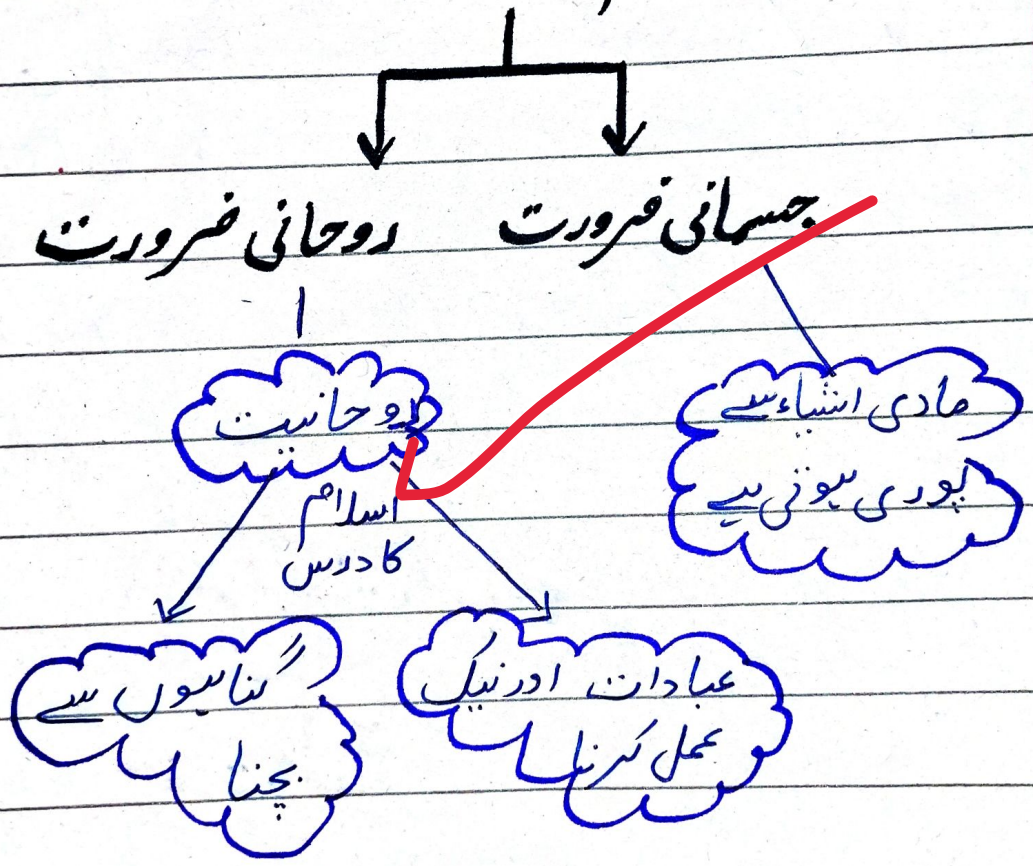 جسمانی ضرورت
روحانی ضرورت
روحانیت
مادی اشیاء سے
پوری ہوتی ہے
اسلام
کا درس
عبادات اور نیک
عمل کرنا
گناہوں سے
بچنا